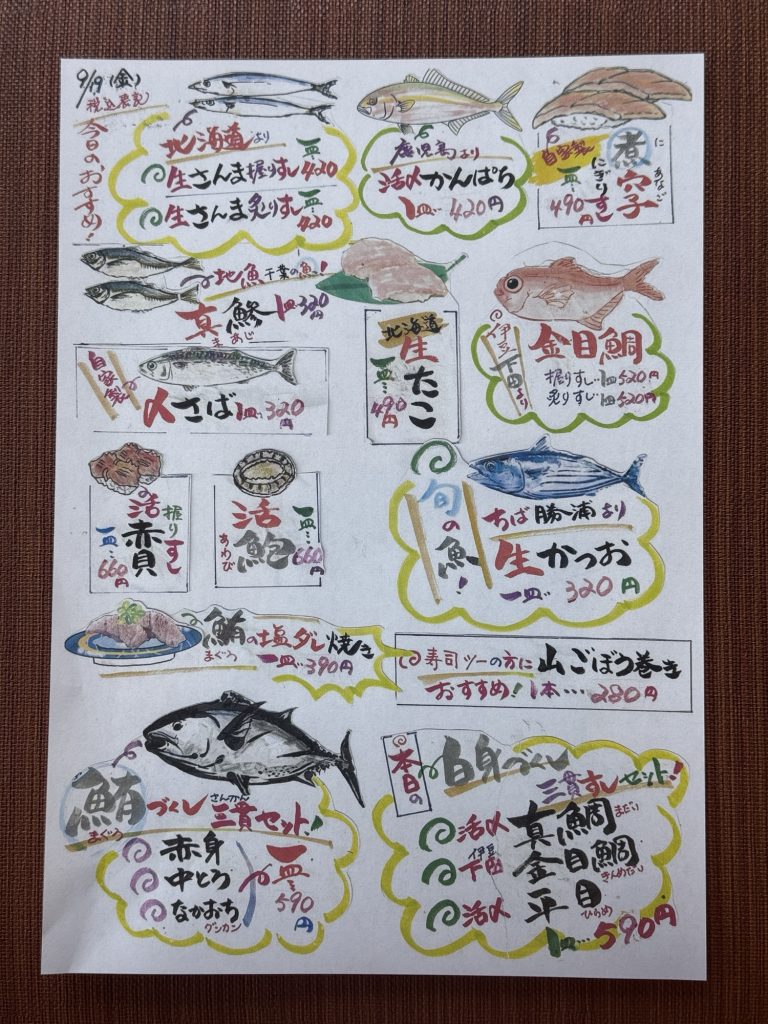 9/19(金)
税込表記
今日のおすすめ!
北海道より
生さんま握りすし 一皿… 420
生さんま炙りすし 一皿… 420
鹿児島より
活〆かんぱち
1皿… 420円
自家製
煮穴子
に あなご
にぎりすし
一皿… 490円
地魚 千葉の魚!
真鯵 1皿 320円
まあじ
自家製
〆さば 1皿… 320円
北海道
生たこ
一皿… 490円
伊豆下田より
金目鯛
握りすし…1皿 520円
炙りすし…1皿 520円
握りすし
活赤貝
一皿… 660円
活鮑
あわび
一皿… 660円
旬の魚!
ちば勝浦より
生かつお
一皿… 320円
鮪の塩ダレ焼き
まぐろ
一皿… 390円
寿司ツーの方に 山ごぼう巻き
おすすめ! 1本… 280円
鮪づくし 三貫セット!
まぐろ さんかん
赤身
中とろ
なかおち
グンカン
一皿… 590円
本日の
白身づくし
三貫すしセット!
活〆 真鯛 まだい
伊豆下田 金目鯛 きんめだい
活〆 平目 ひらめ
1皿… 590円